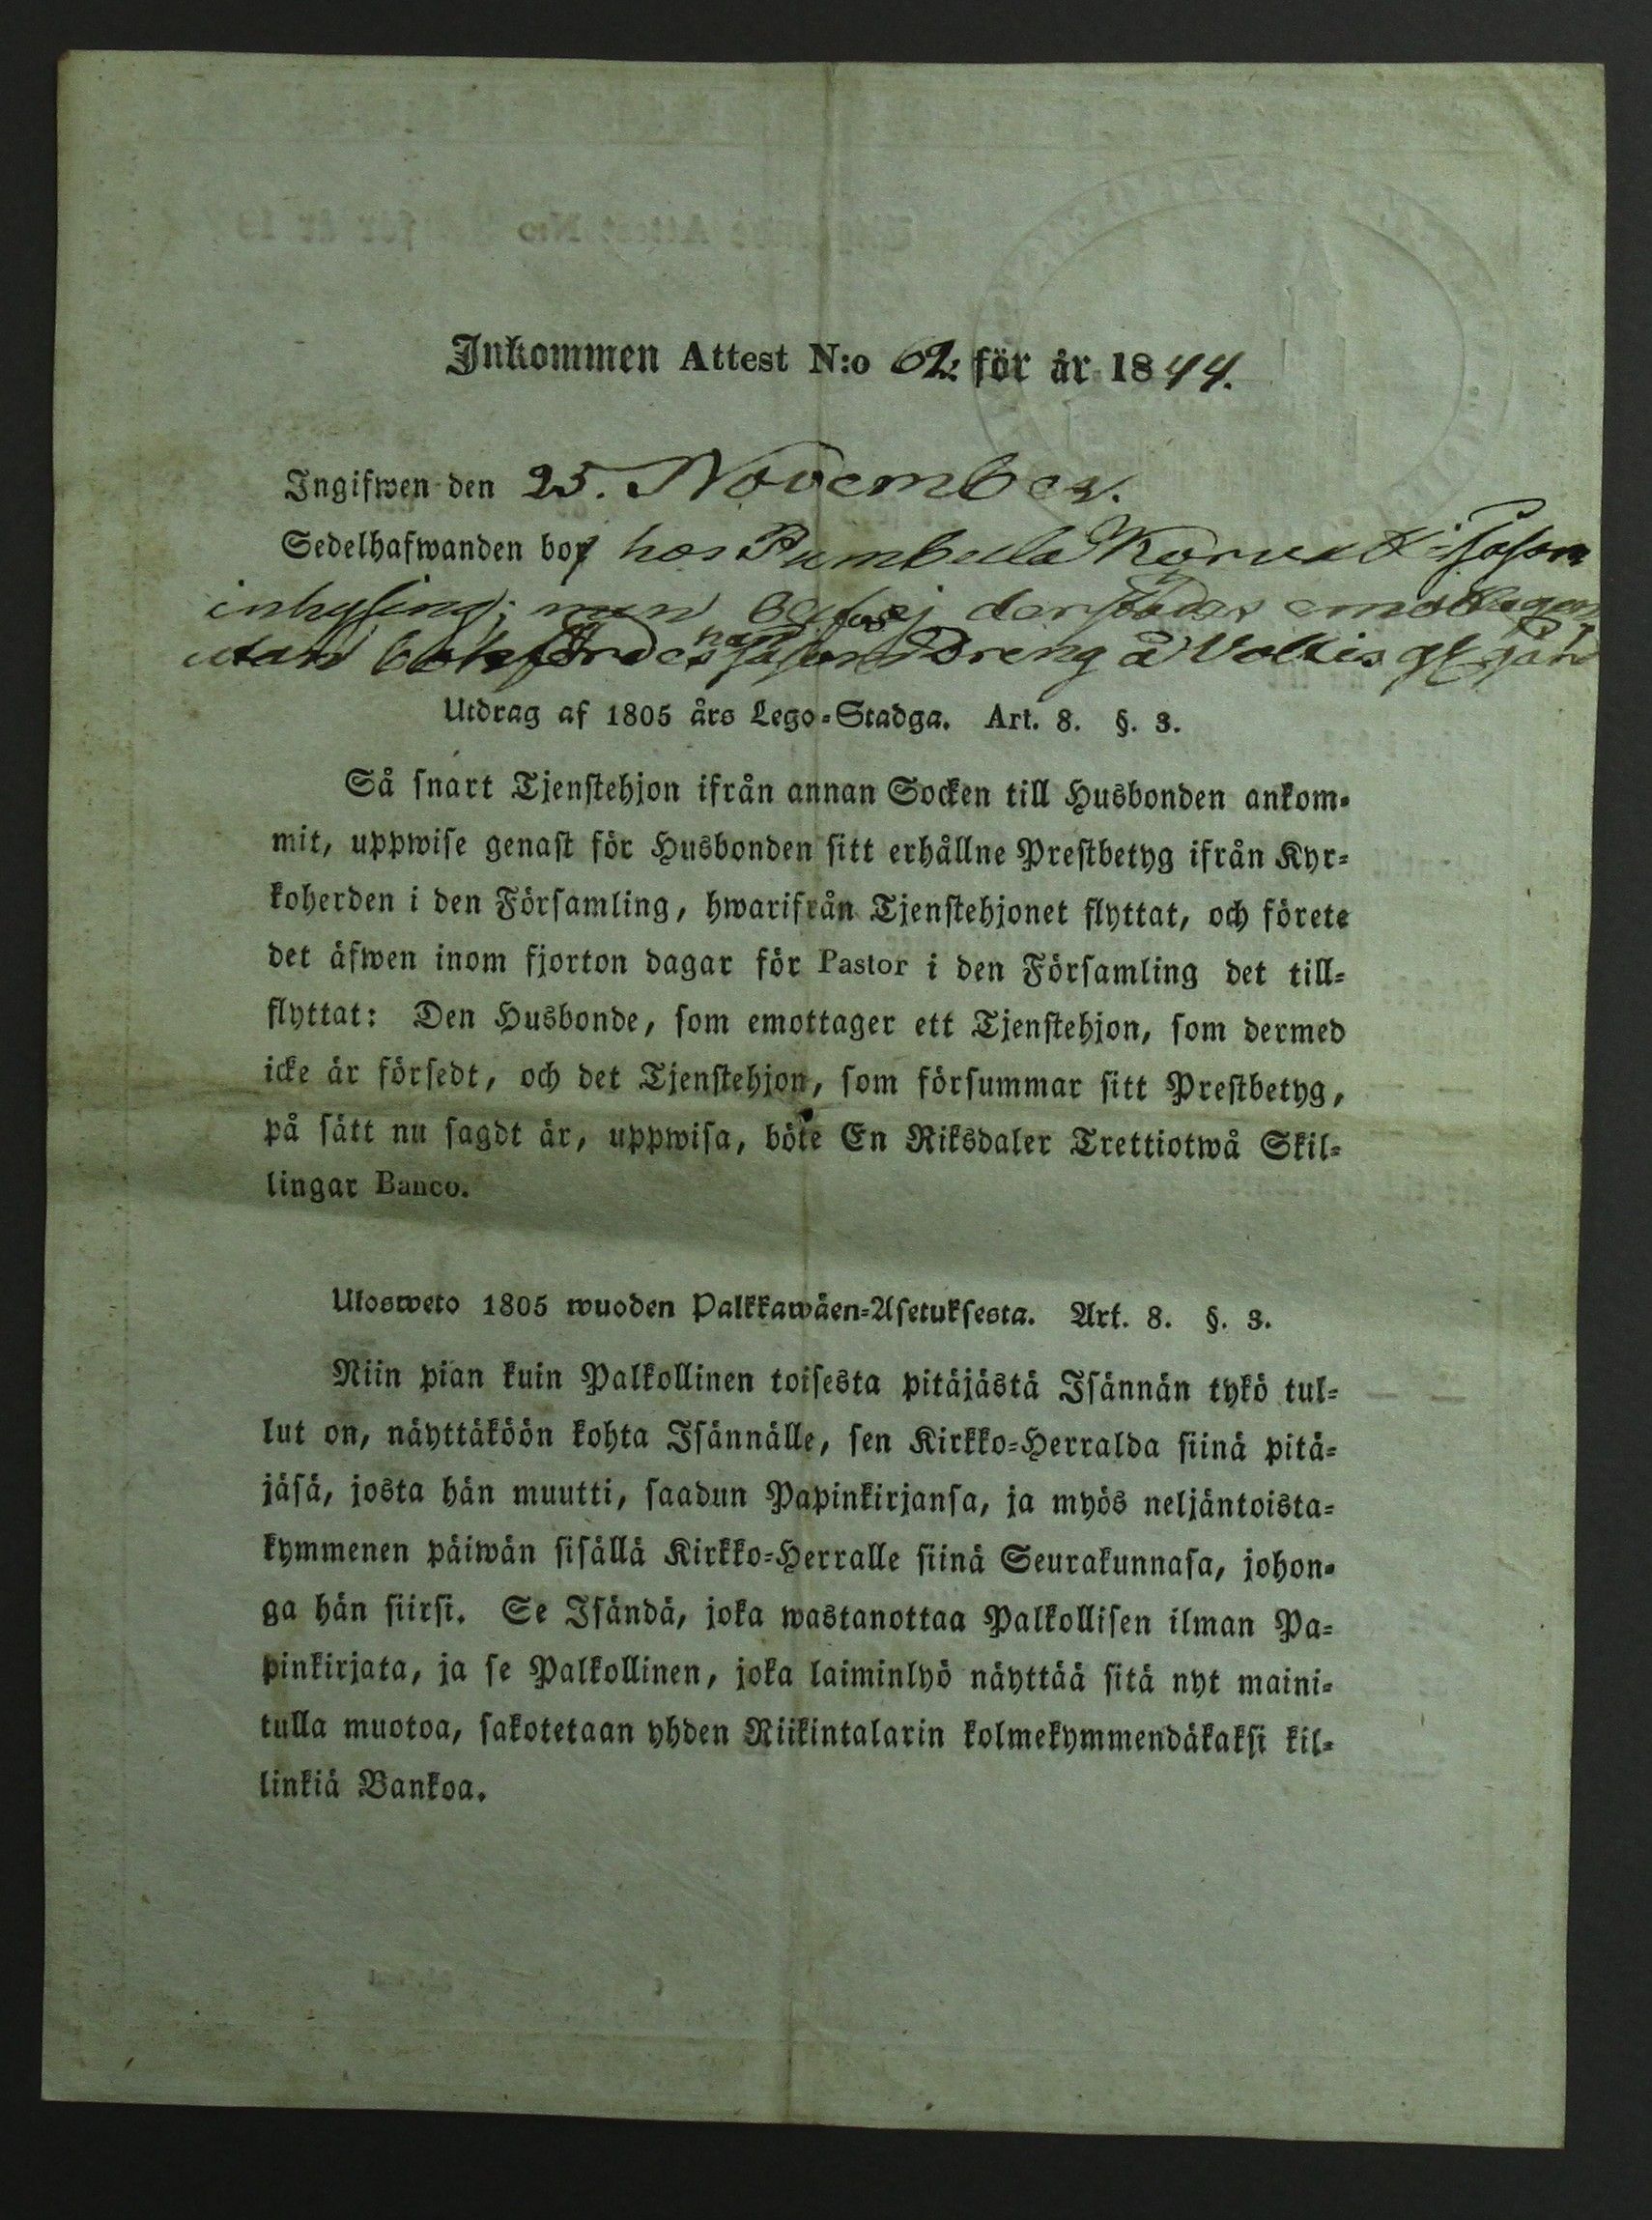 Inkommen Attest N:o 62 för år 1844.
Ingifwen den 25. November.
Sedelhafwanden bor hos Pumbula Korven såsom
inhysing; men ej derstädes emottagen
utan bokfördes han såsom Dreng å
Utdrag af 1805 års Lego-Stadga. Art. 8. §. 3.
Så snart Tjenstehjon ifrån annan Socken till Husbonden ankom-
mit, uppwise genast för Husbonden sitt erhållne Prestbetyg ifrån Kyr-
koherden i den Församling, hwarifrån Tjenstehjonet flyttat, och förete
det äfwen inom fjorton dagar för Pastor i den Församling det till-
flyttat: Den Husbonde, som emottager ett Tjenstehjon, som dermed
icke är försedt, och det Tjenstehjon, som försummar sitt Prestbetyg,
på sätt nu sagdt är, uppwisa, böte En Riksdaler Trettiotwå Skil-
lingar Banco.
Ulosweto 1805 wuoden Palkkawäen-Asetuksesta. Art. 8. §. 3.
Niin pian kuin Palkollinen toisesta pitäjästä Isännän tykö tul-
lut on, näyttäköön kohta Isännälle, sen Kirkko-Herralda siinä pitä-
jäsä, josta hän muutti, saadun Papinkirjansa, ja myös neljäntoista-
kymmenen päiwän sisällä Kirkko-Herralle siinä Seurakunnasa, johon-
ga hän siirsi. Se Isändä, joka wastanottaa Palkollisen ilman Pa-
pinkirjata, ja se Palkollinen, joka laiminlyö näyttää sitä nyt maini-
tulla muotoa, sakotetaan yhden Riikintalarin kolmekymmendäkaksi kil-
linkiä Bankoa.